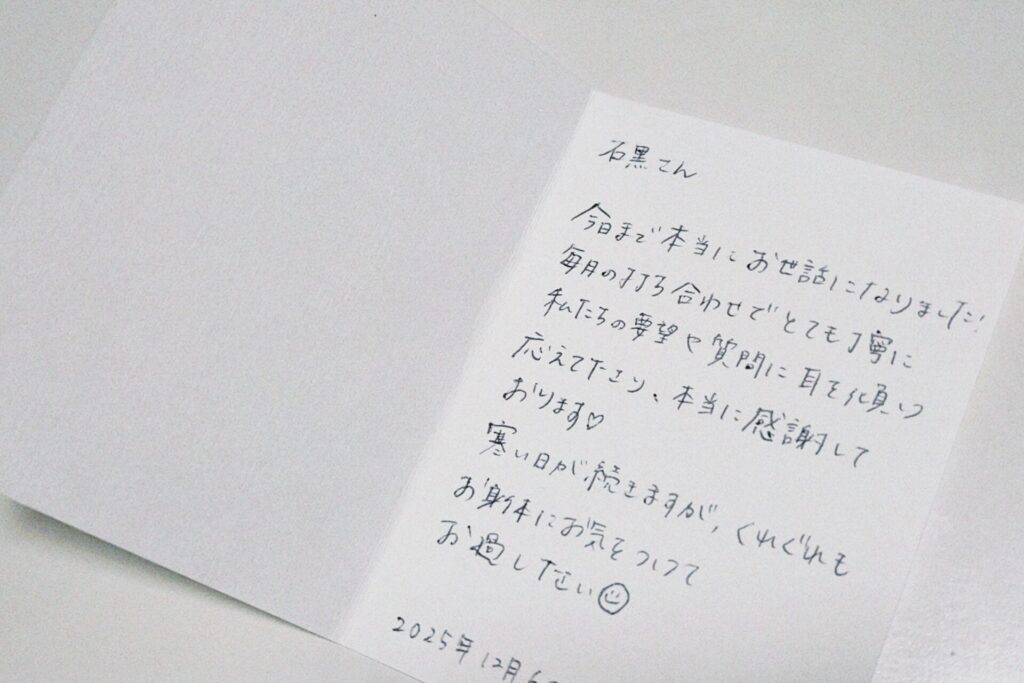 石黒さん
今日まで本当にお世話になりました!
毎月の打ち合わせでとても丁寧に
私たちの要望や質問に耳を傾け
応えて下さり、本当に感謝して
おります♡
寒い日が続きますが、くれぐれも
お身体にお気をつけて
お過し下さい☺
2025年12月6